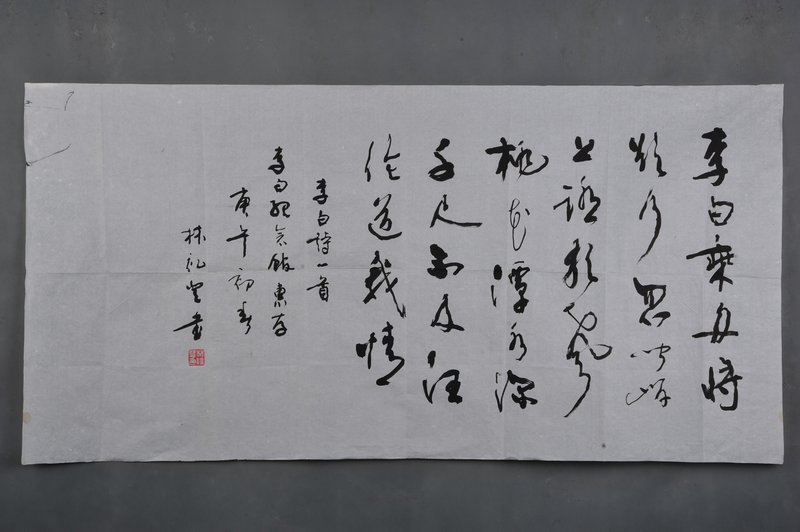 李白乘舟将
欲行忽闻岸
上踏歌声
桃花潭水深
千尺不及汪
伦送我情
李白诗一首
李白纪念馆惠存
庚午初春
林 书